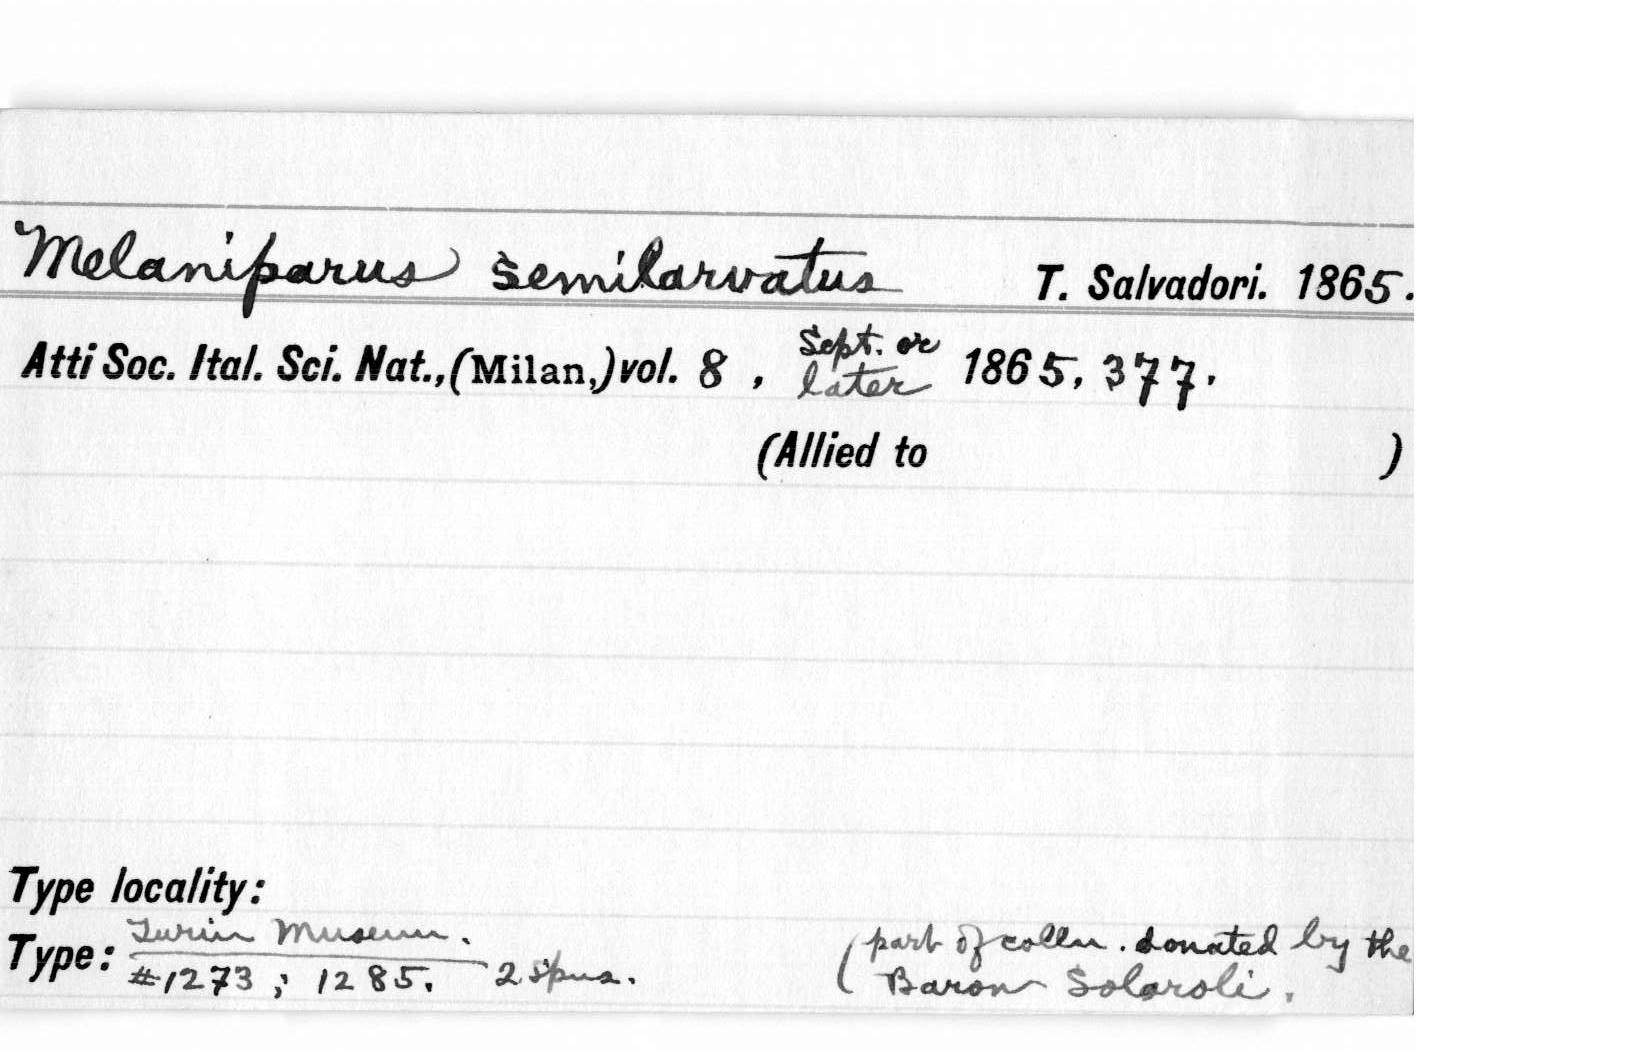 Melaniparus semilarvatus T. Salvadori. 1865.
Atti Soc. Ital. Sci. Nat., (Milan,) vol. 8, Sept. or later 1865, 377.
(Allied to )
Type locality:
Type: Turin Museum.
#1273; 1285. 2 spns.
(part of colln. donated by the
Baron Solaroli.